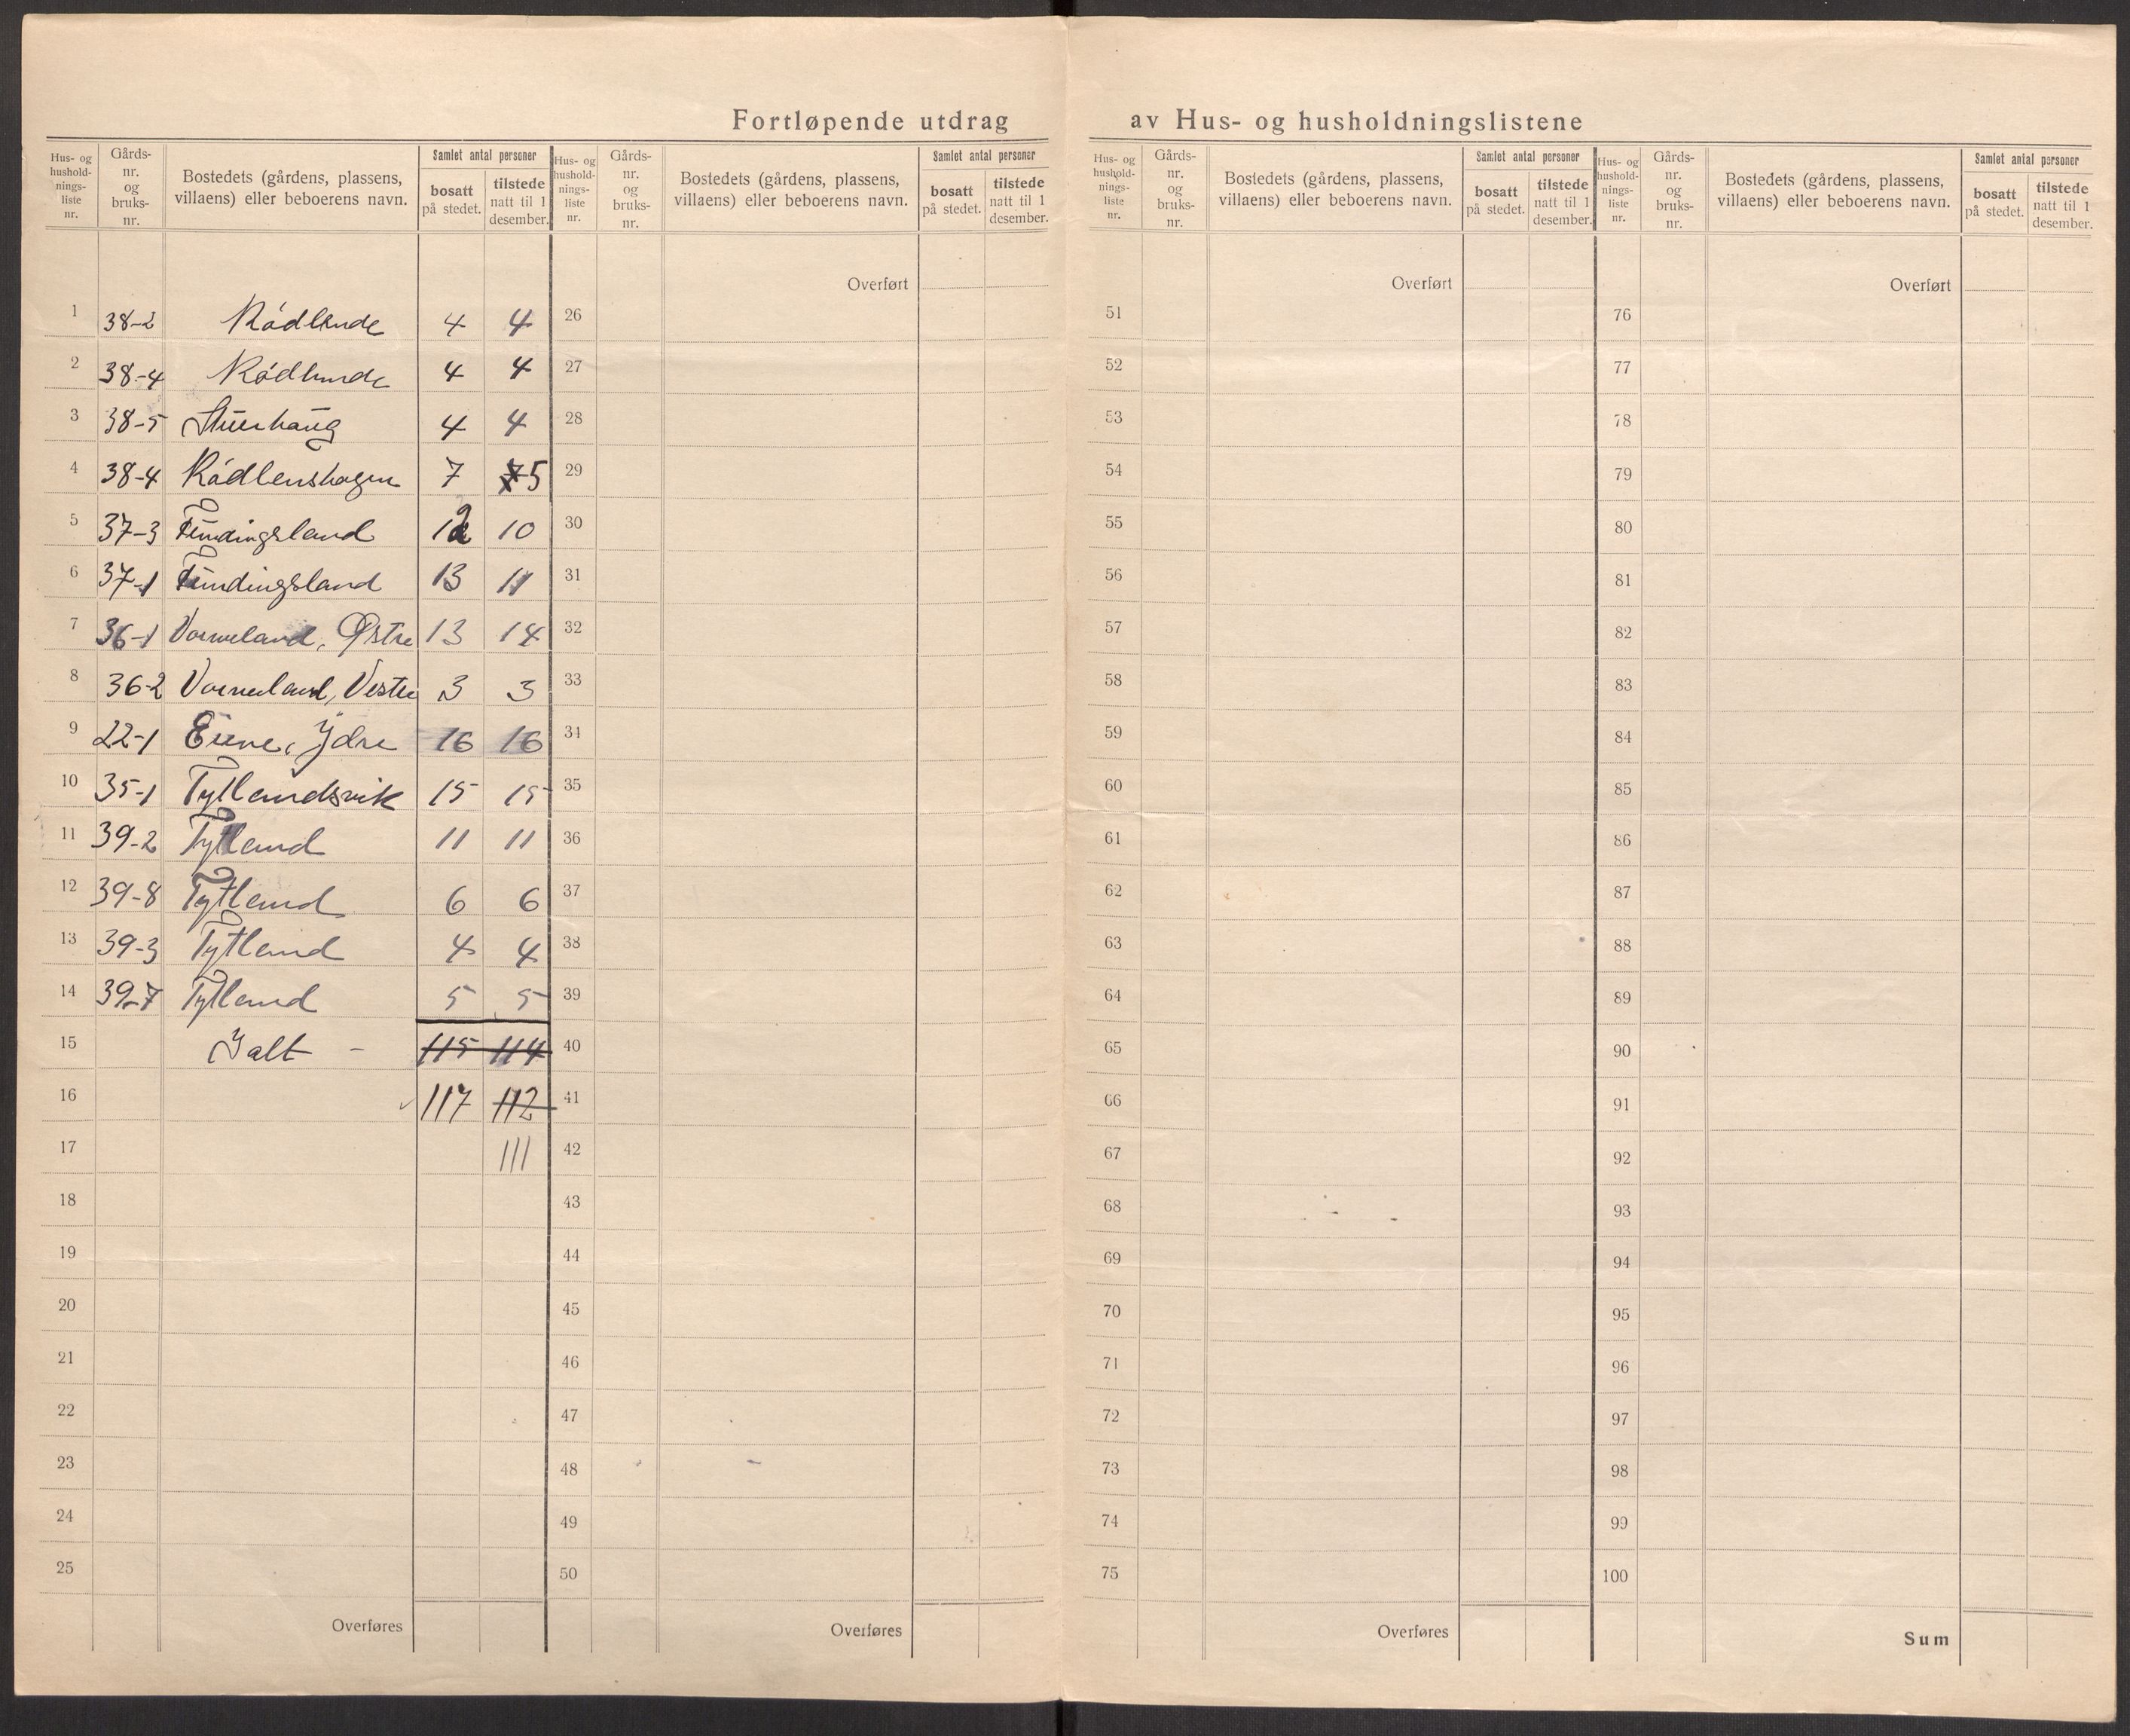 Fortløpende utdrag av Hus- og husholdningslistene
Hus- og hushold-nings-liste nr. | Gårds-nr. og bruks-nr. | Bostedets (gårdens, plassens, villaens) eller beboerens navn. | Samlet antal personer | bosatt på stedet. | tilstede natt til 1 desember.
Hus- og hushold-nings-liste nr. | Gårds-nr. og bruks-nr. | Bostedets (gårdens, plassens, villaens) eller beboerens navn. | Samlet antal personer | bosatt på stedet. | tilstede natt til 1 desember.
1 38-2 Rødlende 4 4
2 38-4 Rødlende 4 4
3 38-5 4 4
4 38-4 7 5
5 37-3 Fundingsland 12 10
6 37-1 Fundingsland 13 11
7 36-1 Vormeland, Østre 13 14
8 36-2 Vormeland, Vestre 3 3
9 22-1 Eiene, Ydre 16 16
10 35-1 Tytlandsvik 15 15
11 39-2 Tytland 11 11
12 39-8 Tytland 6 6
13 39-3 Tytland 4 4
14 39-7 Tytland 5 5
15 Ialt - 115 114
16 117 112
17 111
18
19
20
21
22
23
24
25
Overføres
Overført
26
27
28
29
30
31
32
33
34
35
36
37
38
39
40
41
42
43
44
45
46
47
48
49
50
Overføres
Hus- og hushold-nings-liste nr. | Gårds-nr. og bruks-nr. | Bostedets (gårdens, plassens, villaens) eller beboerens navn. | Samlet antal personer | bosatt på stedet. | tilstede natt til 1 desember.
Overført
51
52
53
54
55
56
57
58
59
60
61
62
63
64
65
66
67
68
69
70
71
72
73
74
75
Overføres
Hus- og hushold-nings-liste nr. | Gårds-nr. og bruks-nr. | Bostedets (gårdens, plassens, villaens) eller beboerens navn. | Samlet antal personer | bosatt på stedet. | tilstede natt til 1 desember.
Overført
76
77
78
79
80
81
82
83
84
85
86
87
88
89
90
91
92
93
94
95
96
97
98
99
100
Sum